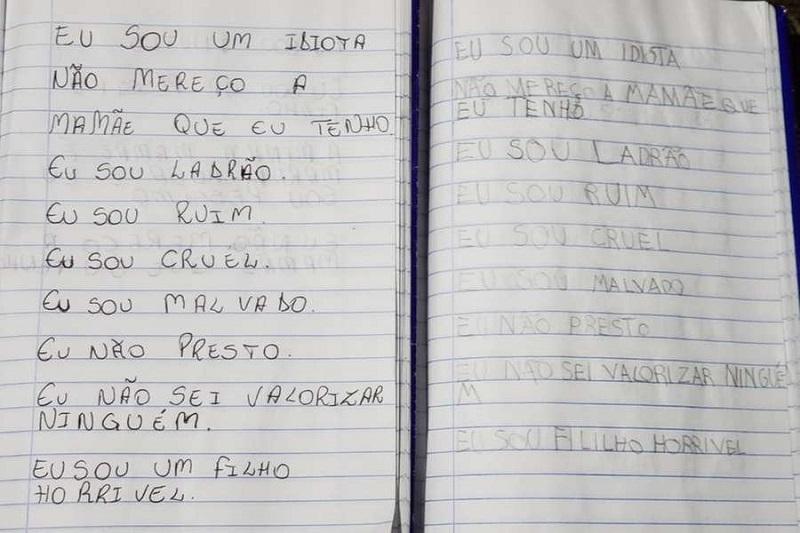 EU SOU UM IDIOTA
NÃO MEREÇO A
MAMÃE QUE EU TENHO
EU SOU LADRÃO.
EU SOU RUIM.
EU SOU CRUEL.
EU SOU MALVADO.
EU NÃO PRESTO.
EU NÃO SEI VALORIZAR
NINGUÉM.
EU SOU UM FILHO
HORRIVEL.
EU SOU UM IDIOTA
NÃO MEREÇO A MAMÃE QUE
EU TENHO
EU SOU LADRÃO
EU SOU RUIM
EU SOU CRUEL
EU SOU MALVADO
EU NÃO PRESTO
EU NÃO SEI VALORIZAR NINGUÉ
M
EU SOU FILILHO HORRIVEL